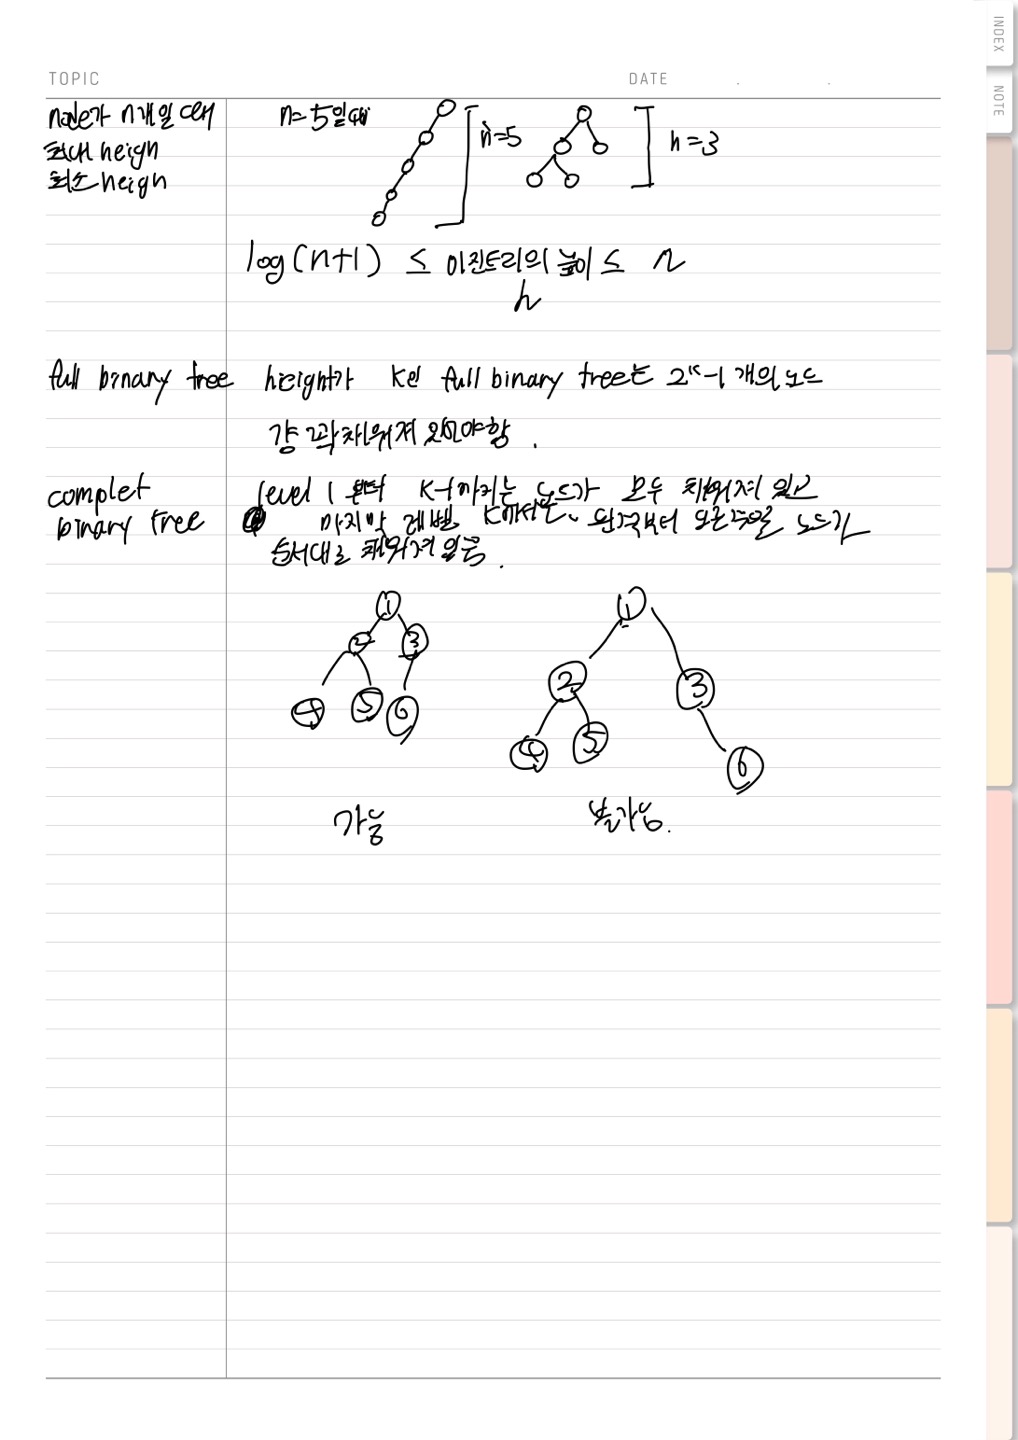 INDEX
NOTE
TOPIC
DATE . .
node가 n개일 때
최대 heigh
최소 heigh
n=5일때
h=5
h=3
log(n+1) ≤ 이진트리의 높이 ≤ n
h
full binary tree
height가 K인 full binary tree는 2ᴷ-1 개의 노드
걍 꽉 채워져 있어야함.
complet
binary tree
level 1 부터 K-1까지는 노드가 모두 채워져 있고
마지막 레벨 K에서는 왼쪽부터 오른쪽으로 노드가
순서대로 채워져 있음.
1
2 3
4 5 6
가능
1
2 3
4 5 6
불가능.